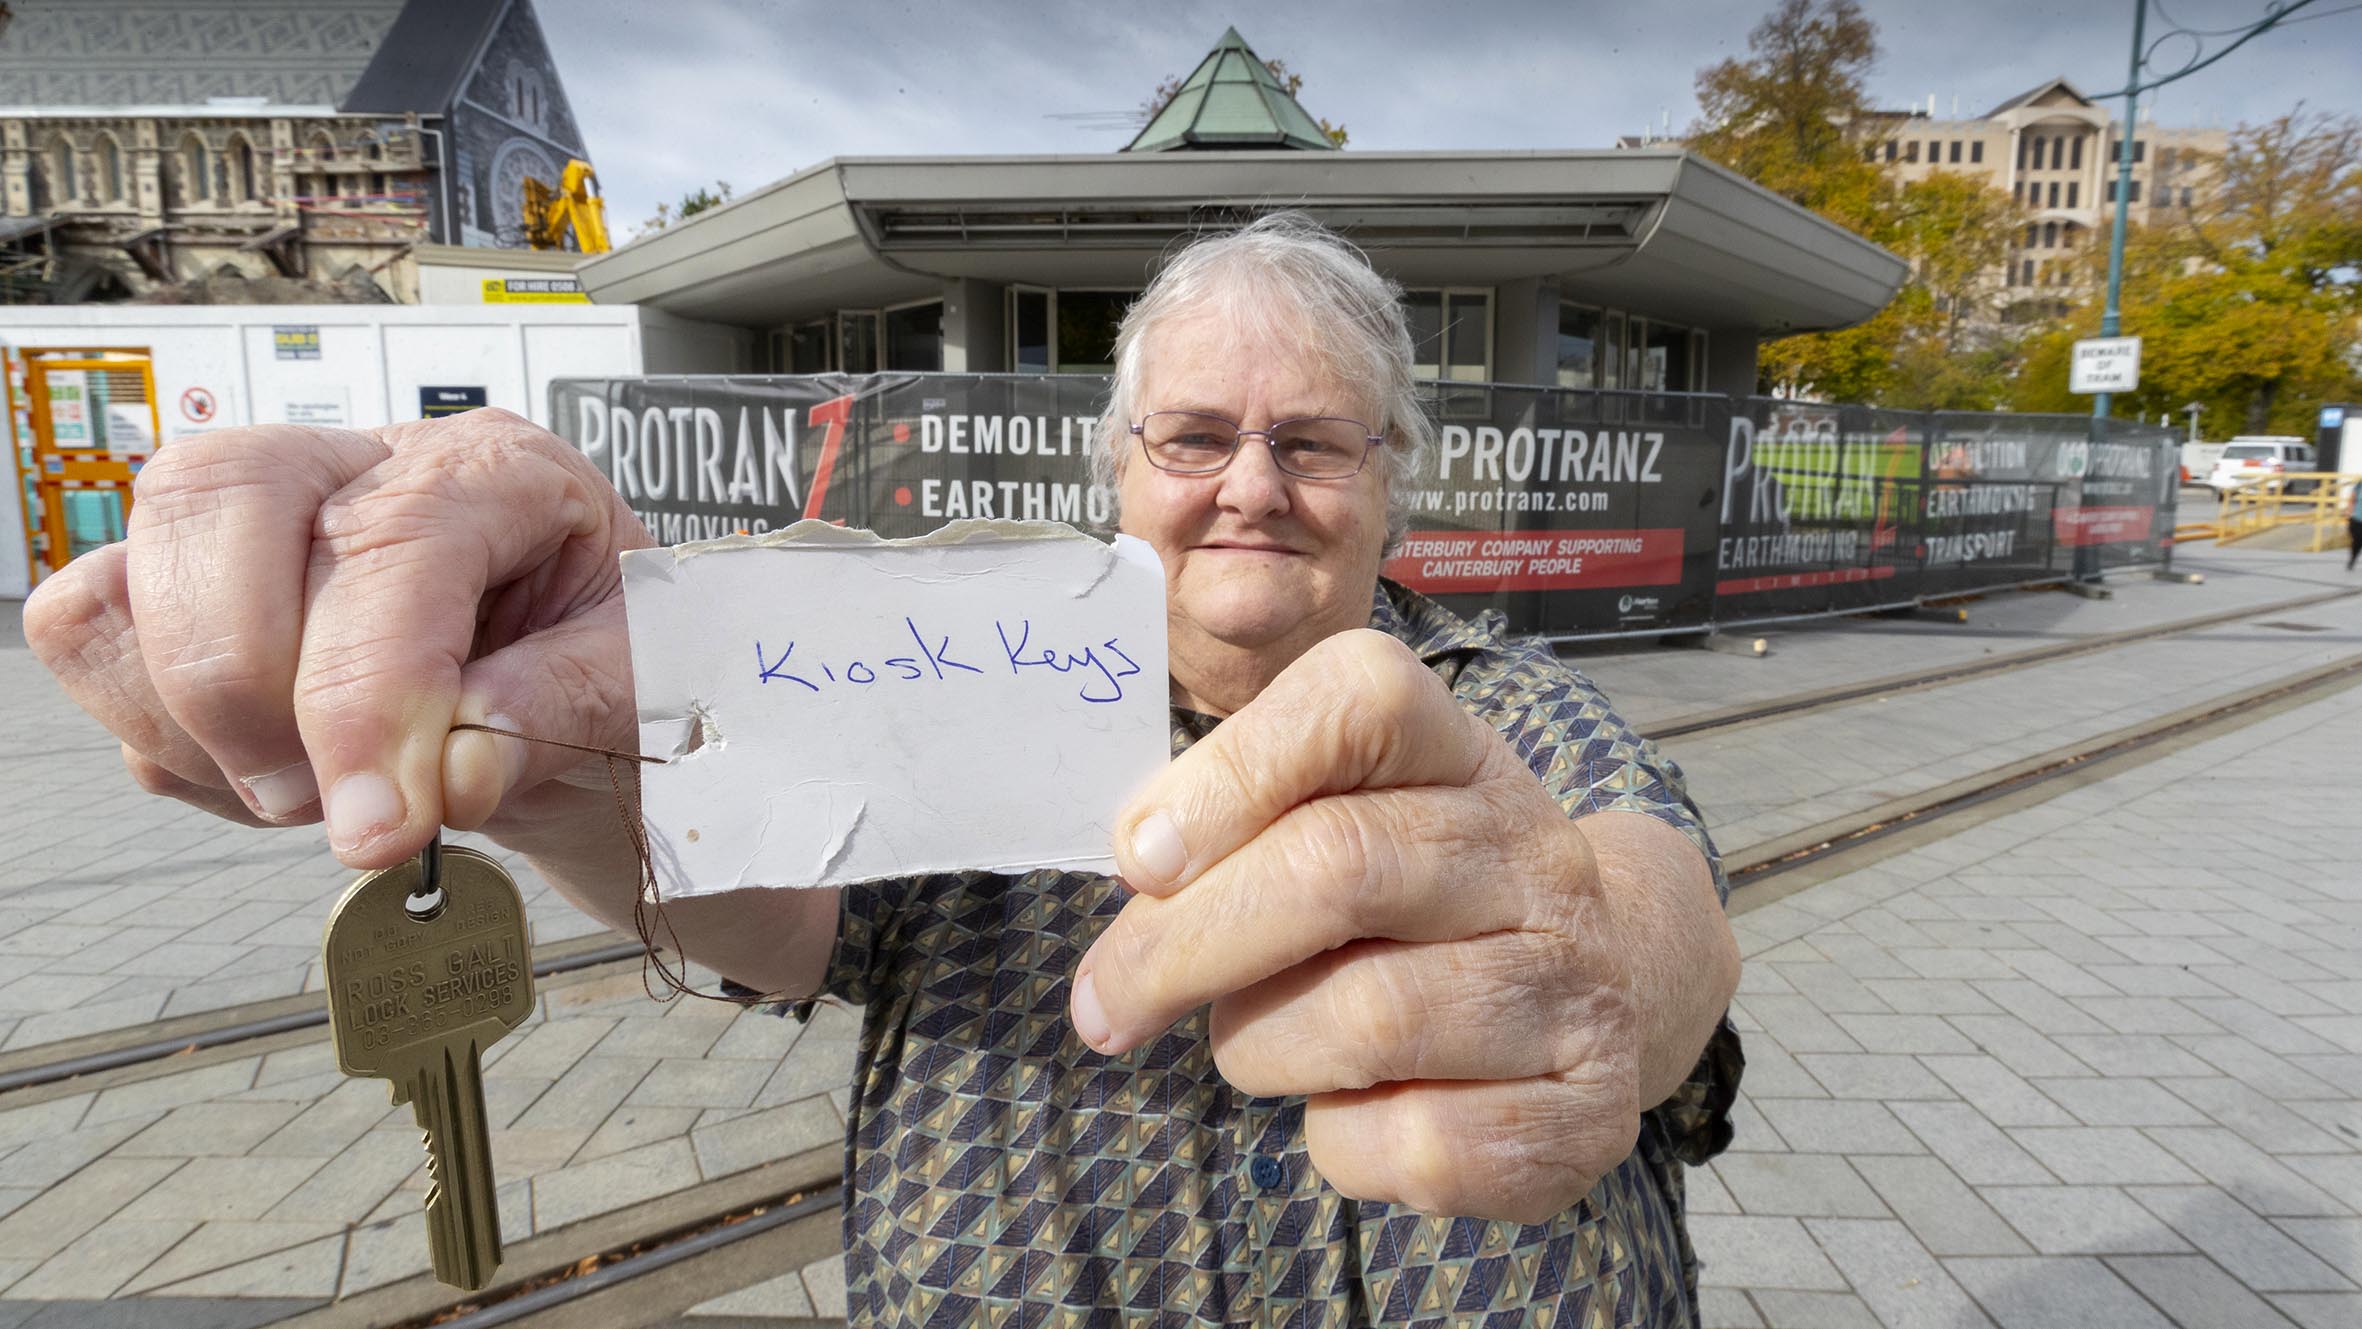 FOR HIRE 0508
BEWARE
OF
TRAM
PROTRANZ
EARTHMOVING
DEMOLIT
EARTHMO
PROTRANZ
www.protranz.com
TERBURY COMPANY SUPPORTING
CANTERBURY PEOPLE
PROTRANZ
EARTHMOVING
LIMITED
DEMOLITION
EARTHMOVING
TRANSPORT
PROTRANZ
Kiosk Keys
DO
NOT COPY
REG
DESIGN
ROSS GALT
LOCK SERVICES
03-365-0298